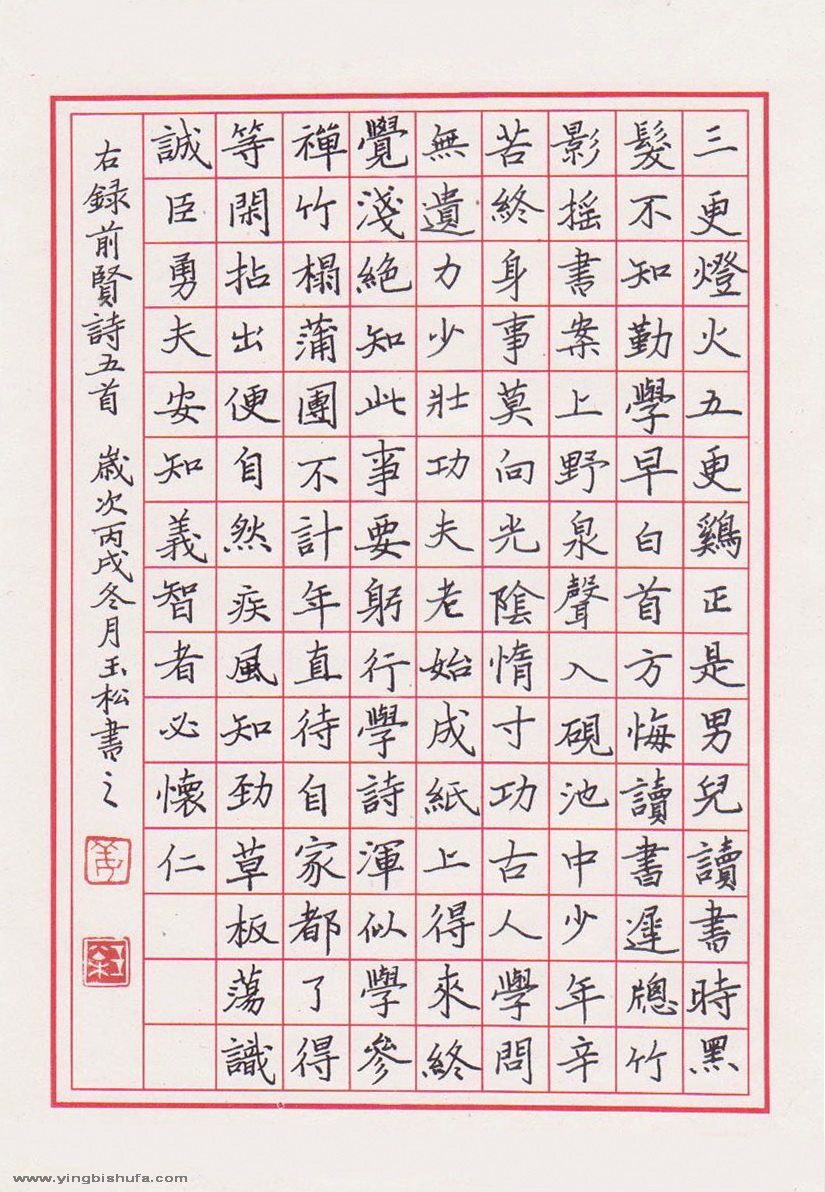 三更燈火五更鷄正是男兒讀書時黑
髮不知勤學早白首方悔讀書遲牕竹
影摇書案上野泉聲入硯池中少年辛
苦終身事莫向光陰惰寸功古人學問
無遺力少壯功夫老始成紙上得來終
覺淺絶知此事要躬行學詩渾似學參
禪竹榻蒲團不計年直待自家都了得
等閑拈出便自然疾風知勁草板蕩識
誠臣勇夫安知義智者必懷仁
右録前賢詩五首 歲次丙戌冬月玉松書之
www.yingbishufa.com